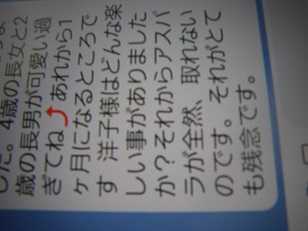 した。4歳の長女と2
歳の長男が可愛い過
ぎてね⤴あれから1
ヶ月になるところで
す 洋子様はどんな楽
しい事がありました
か?それからアスパ
ラが全然、取れない
のです。それがとて
も残念です。